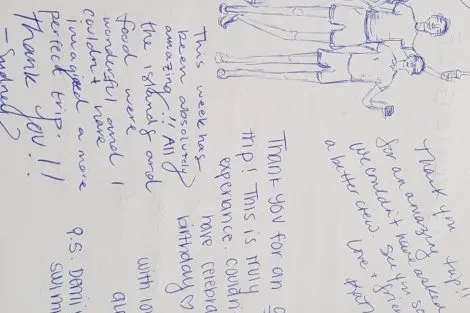 This week has
been absolutely
amazing!! All
the islands and
food were
wonderful and I
couldn't have
imagined a more
perfect trip.
Thank you!!
-Sydney
Thank you for an
trip! This is truly
experience. Couldn
have celebra
birthday ♡
with lo
P.S. Demi
swim
Thank you
for an amazing trip!!
we couldn't have asked
a better crew. See you so
love +